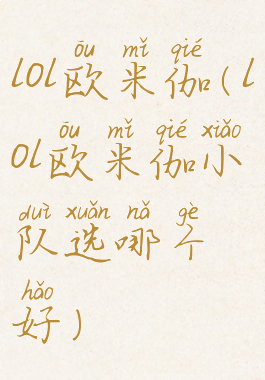 ōu mǐ qié
lol欧米伽(l
ōu mǐ qié xiǎo
ol欧米伽小
duì xuǎn nǎ gè
队选哪个
hǎo
好)